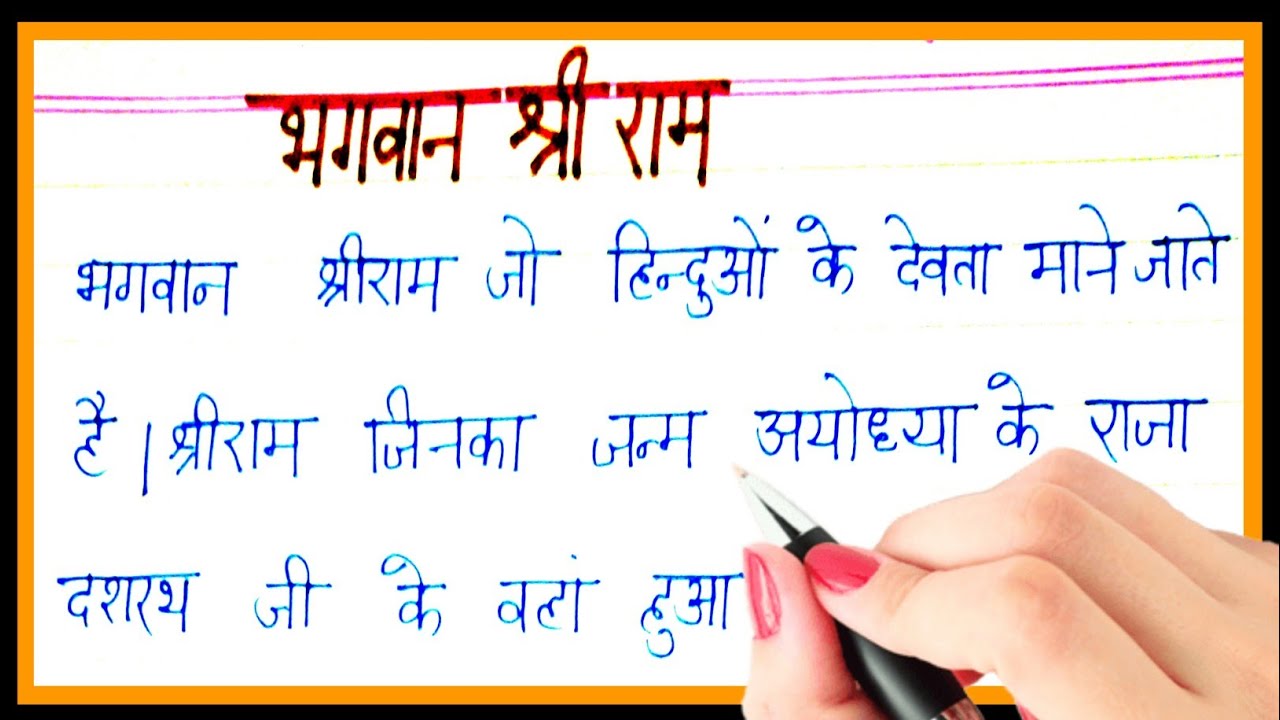 भगवान श्री राम
भगवान श्रीराम जो हिन्दुओं के देवता माने जाते
है । श्रीराम जिनका जन्म अयोध्या के राजा
दशरथ जी के वहां हुआ